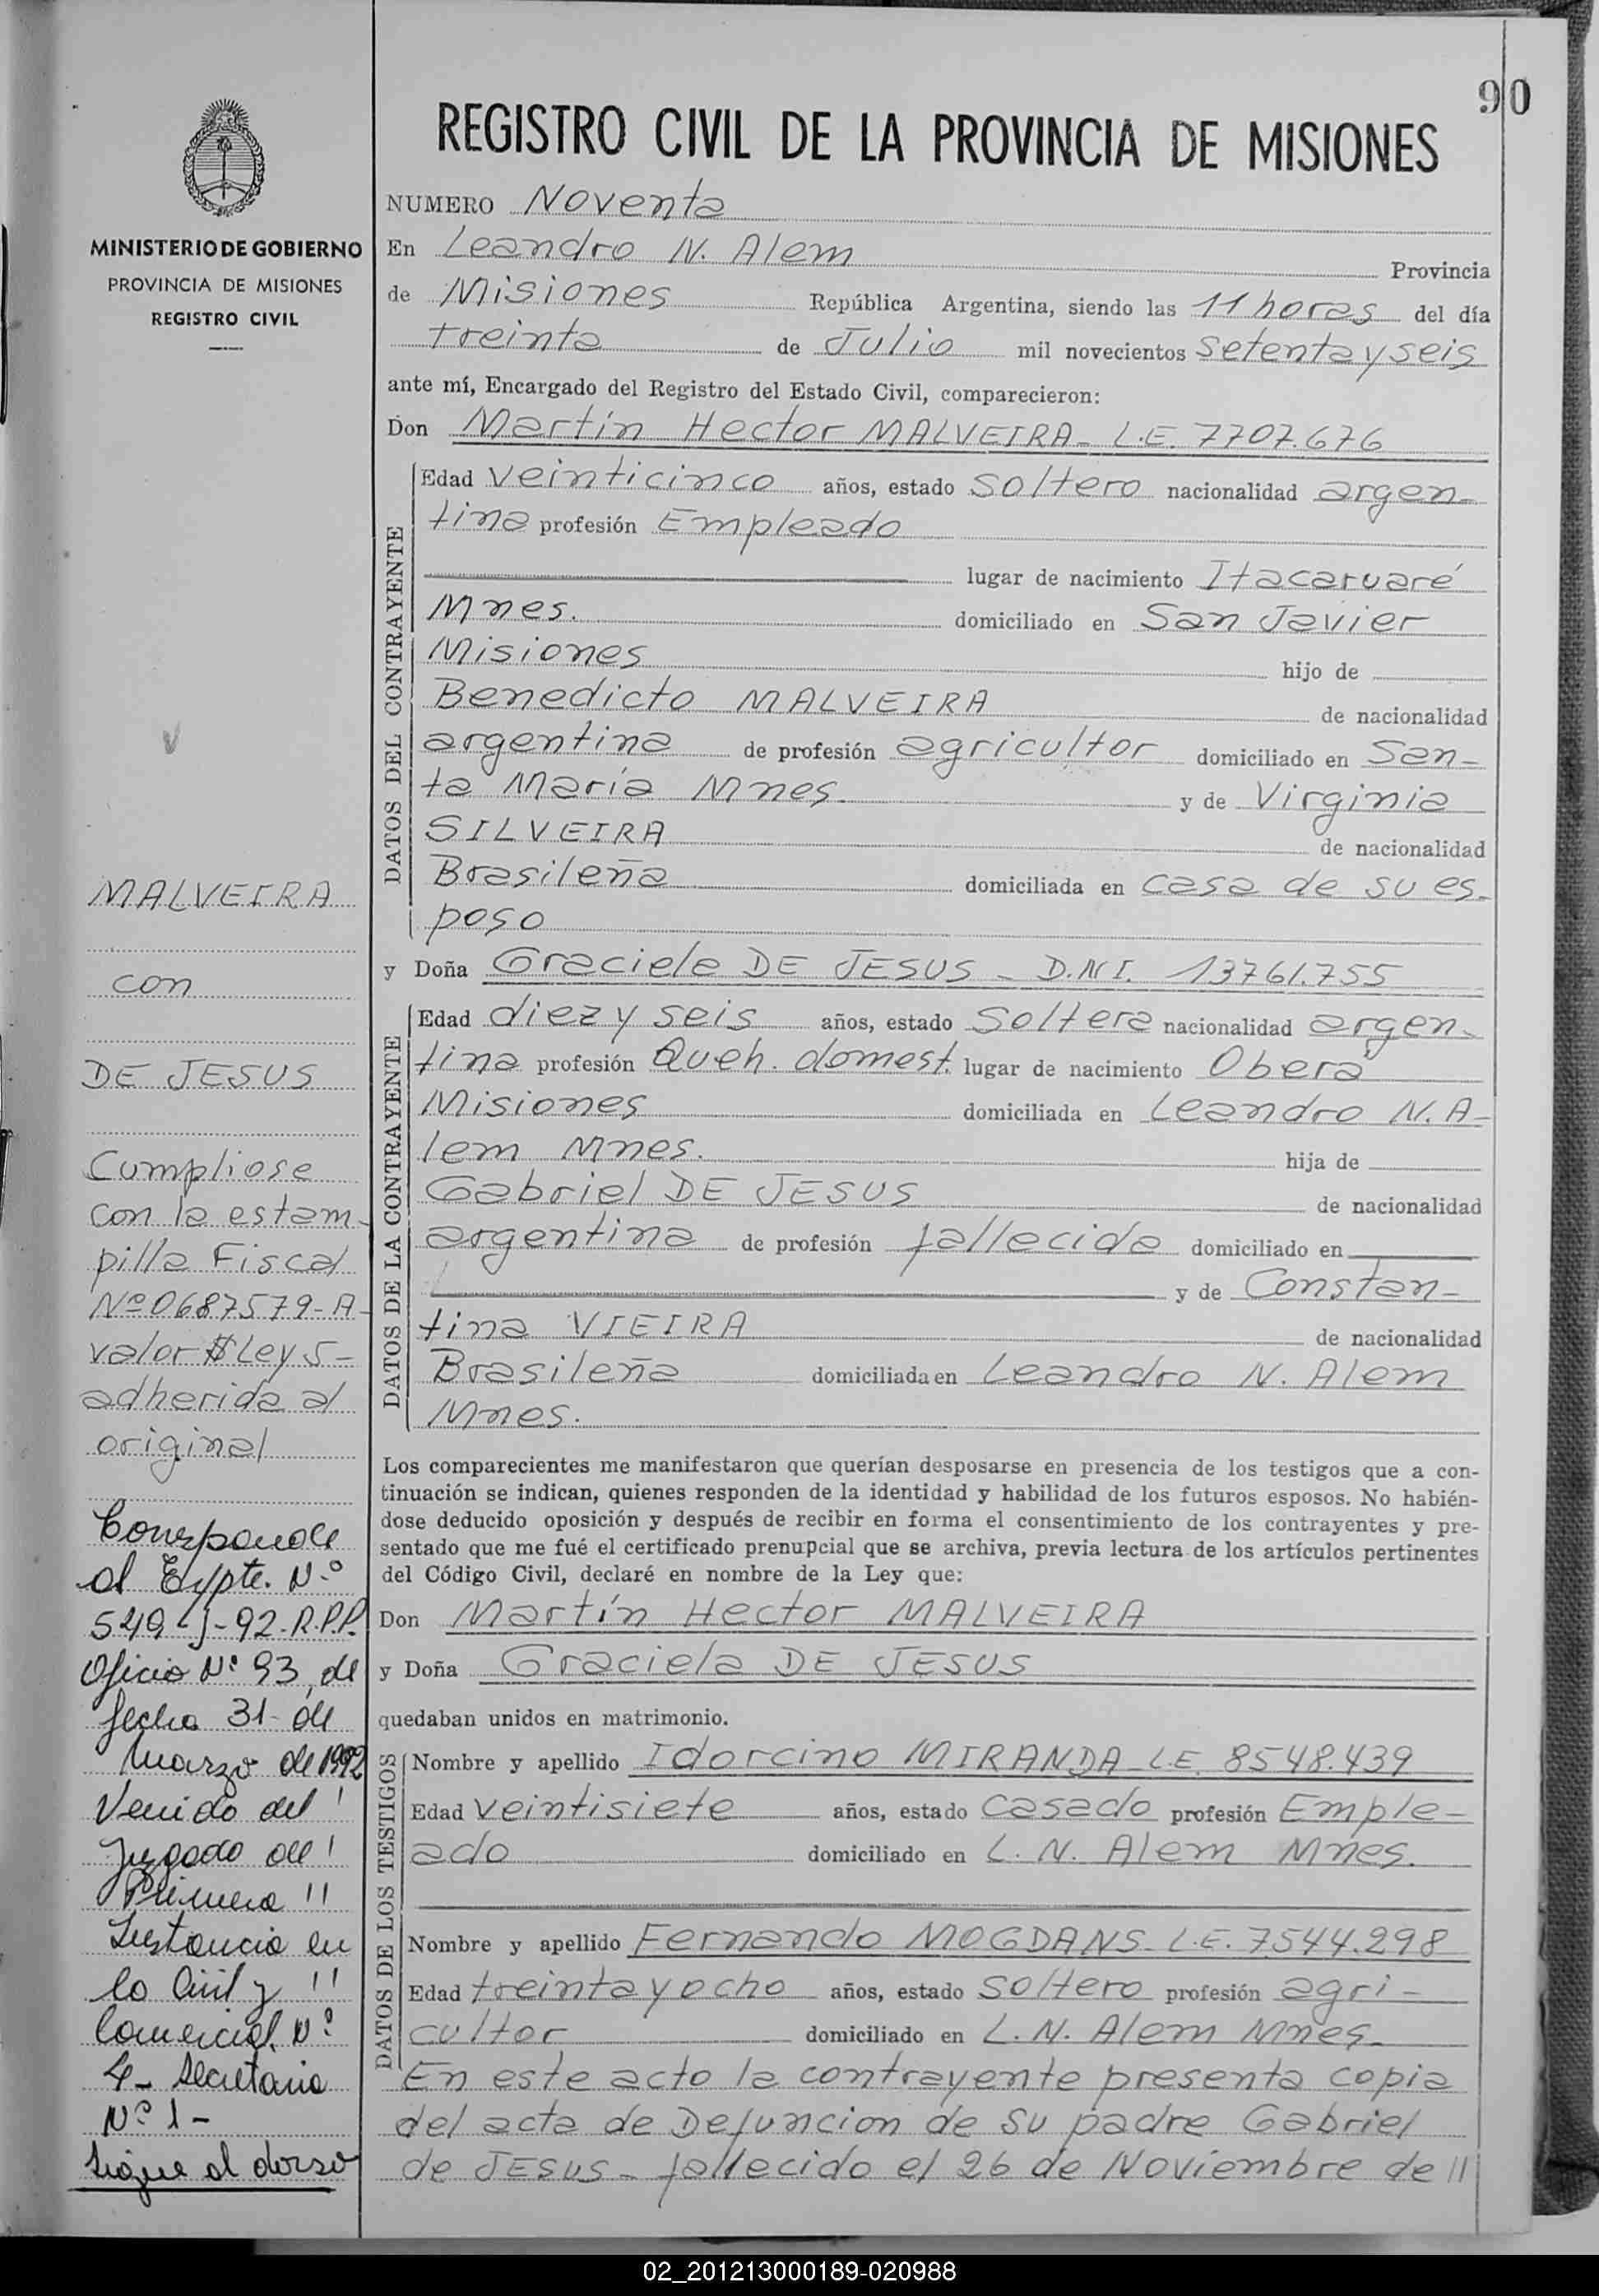 90
REGISTRO CIVIL DE LA PROVINCIA DE MISIONES
MINISTERIO DE GOBIERNO
PROVINCIA DE MISIONES
REGISTRO CIVIL
MALVEIRA
con
DE JESUS
Cumpliose
con la estam-
pilla Fiscal
Nº 0687579-A-
valor $Ley 5-
adherida al
original
Corresponde
al Expte. N.º
549-J-92-R.P.P.
Oficio Nº 93, de
fecha 31 de
Marzo de 1992
Venido del
Juzgado de
Primera
Instancia en
lo Civil y
Comercial Nº
4- Secretaria
Nº 1-
Sigue al dorso
NUMERO Noventa
En Leandro N. Alem Provincia
de Misiones República Argentina, siendo las 11 horas del día
treinta de Julio mil novecientos setenta y seis
ante mí, Encargado del Registro del Estado Civil, comparecieron:
Don Martín Hector MALVEIRA- L.E. 7707.676
DATOS DEL CONTRAYENTE
Edad veinticinco años, estado soltero nacionalidad argen-
tina profesión Empleado
lugar de nacimiento Itacaruaré
Mnes. domiciliado en San Javier
Misiones hijo de
Benedicto MALVEIRA de nacionalidad
argentina de profesión agricultor domiciliado en San-
ta María Mnes. y de Virginia
SILVEIRA de nacionalidad
Brasileña domiciliada en casa de su es-
poso
y Doña Graciela DE JESUS - D.N.I. 13761.755
DATOS DE LA CONTRAYENTE
Edad diez y seis años, estado soltera nacionalidad argen-
tina profesión Queh. domest. lugar de nacimiento Oberá
Misiones domiciliada en Leandro N. A-
lem Mnes. hija de
Gabriel DE JESUS de nacionalidad
argentina de profesión fallecido domiciliado en
y de Constan-
tina VIEIRA de nacionalidad
Brasileña domiciliada en Leandro N. Alem
Mnes.
Los comparecientes me manifestaron que querían desposarse en presencia de los testigos que a con-
tinuación se indican, quienes responden de la identidad y habilidad de los futuros esposos. No habién-
dose deducido oposición y después de recibir en forma el consentimiento de los contrayentes y pre-
sentado que me fué el certificado prenupcial que se archiva, previa lectura de los artículos pertinentes
del Código Civil, declaré en nombre de la Ley que:
Don Martín Hector MALVEIRA
y Doña Graciela DE JESUS
quedaban unidos en matrimonio.
DATOS DE LOS TESTIGOS
Nombre y apellido Idorcino MIRANDA- L.E. 8548.439
Edad veintisiete años, estado casado profesión Emple-
ado domiciliado en L. N. Alem Mnes.
Nombre y apellido Fernando MOGDANS- L.E. 7.544.298
Edad treinta y ocho años, estado soltero profesión agri-
cultor domiciliado en L. N. Alem Mnes-
En este acto la contrayente presenta copia
del acta de Defuncion de su padre Gabriel
de JESUS- fallecido el 26 de Noviembre de
02_201213000189-020988